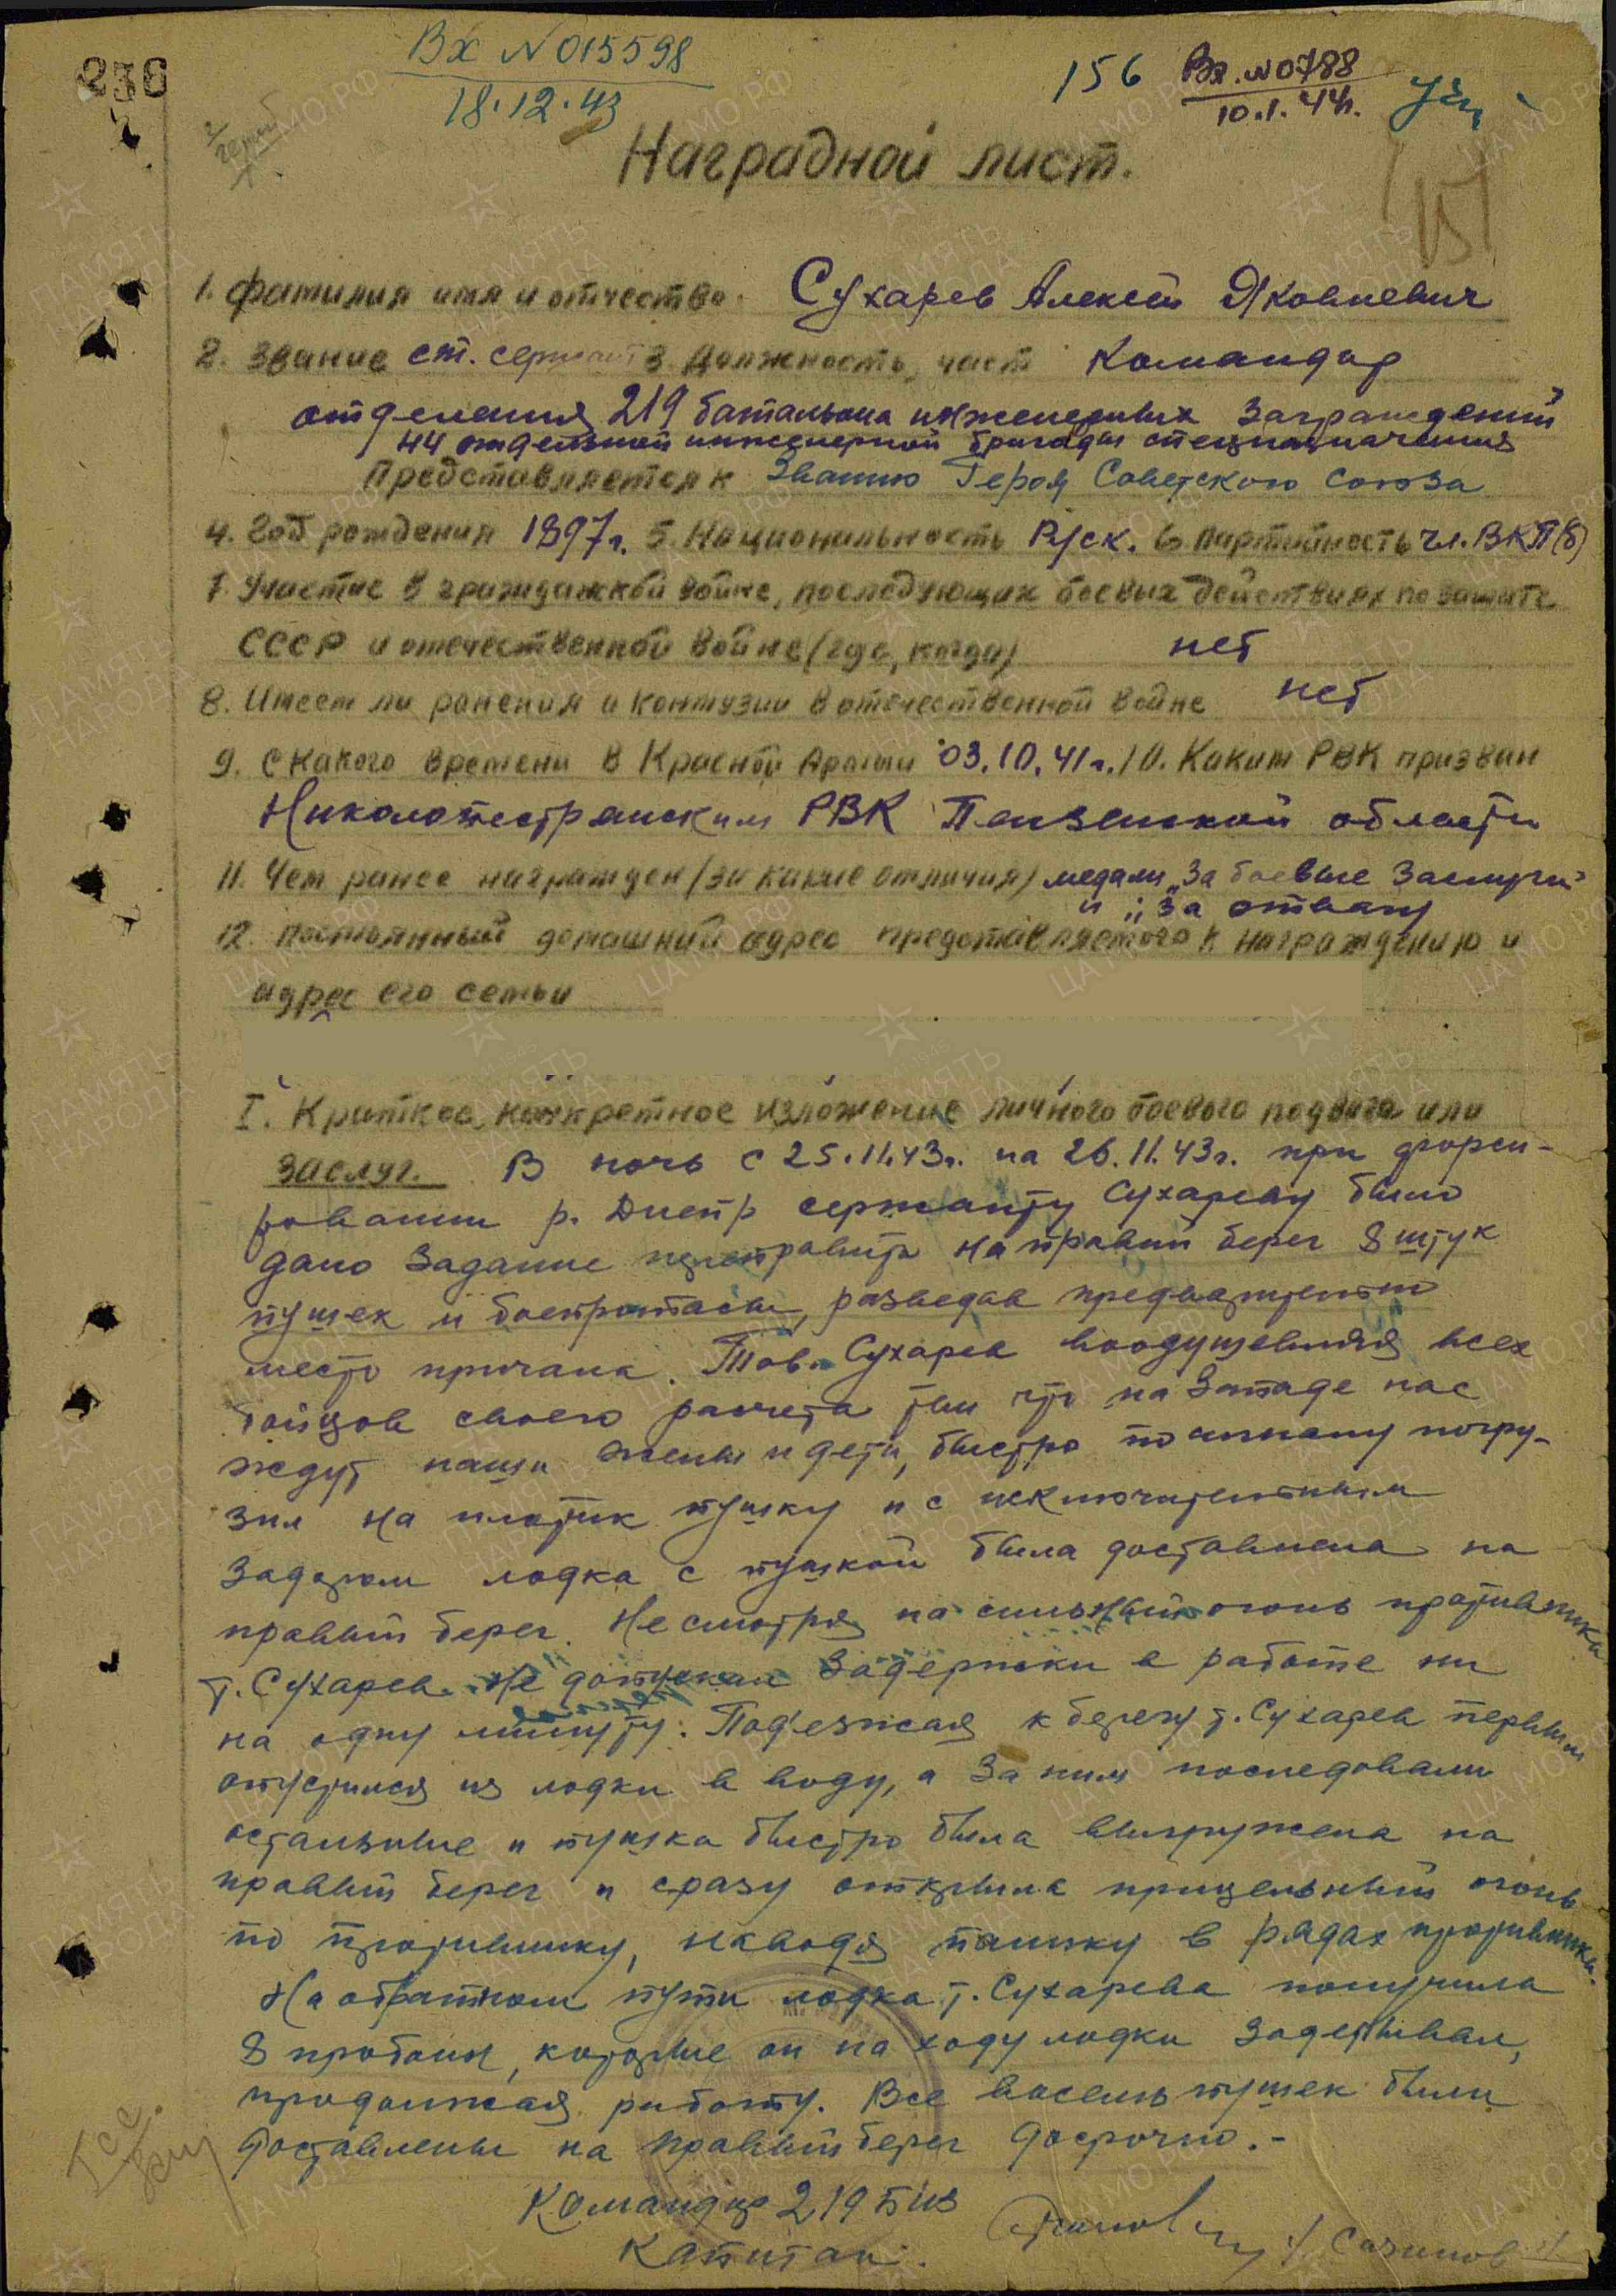 236
Вх N 015598
18.12.43
156
Вх. N 0788
10.1.44г.
151
Наградной лист.
1. Фамилия имя и отчество Сухарев Алексей Яковлевич
2. Звание ст. сержант 3. Должность, част Командир
отделения 219 батальона инженерных заграждений
44 отдельной инженерной бригады спецназначения
Представляется к Званию Героя Советского Союза
4. Год рождения 1897г. 5. Национальность Руск. 6. Партийность чл. ВКП(б)
7. Участие в гражданской войне, последующих боевых действиях по защите
СССР и отечественной войне (где, когда) нет
8. Имеет ли ранения и контузии в отечественной войне нет
9. С какого времени в Красной Армии 03.10.41г. 10. Каким РВК призван
Николопестравским РВК Пензенской области
11. Чем ранее награжден (за какие отличия) медали „За боевые заслуги"
и „За отвагу
12. Постоянный домашний адрес представляемого к награждению и
адрес его семьи
I. Краткое, конкретное изложение личного боевого подвига или
заслуг. В ночь с 25.11.43г. на 26.11.43г. при форси-
ровании р. Днепр сержанту Сухареву было
дано задание переправить на правый берег 8 штук
пушек и боеприпасы, разведав предварительно
место причала. Тов. Сухарев воодушевляя всех
бойцов своего расчета тем что на Западе нас
ждут наши жены и дети, быстро по погру-
зил на плотик пушку и с исключительным
задором лодка с пушкой была доставлена на
правый берег. Несмотря на сильный огонь противника
т. Сухарев не допускал задержки в работе ни
на одну минуту. Под'езжая к берегу т. Сухарев первым
опустился из лодки в воду, а за ним последовали
остальные и пушка быстро была выгружена на
правый берег и сразу открыла прицельный огонь
по противнику, наводя панику в рядах противника.
На обратном пути лодка т. Сухарева получила
8 пробоин, которые он на ходу лодки заделывал,
продолжая работу. Все восемь пушек были
доставлены на правый берег досрочно.-
Командир 219 БИЗ
Капитан
ПАМЯТЬ НАРОДА
ЦА МО РФ